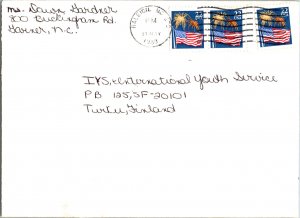 Ms. Dawn Gardner
800 Buckingham Rd.
Garner, N.C.
RALEIGH, N.C.
PM
1991
22
22
22
IYS-International Youth Service
P.B. 125, SF-20101
Turku, Finland